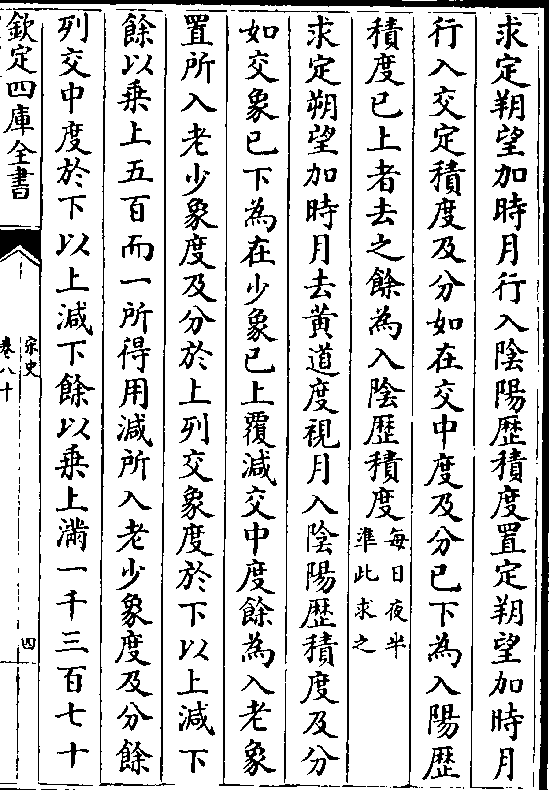 求定朔望加時月行入陰陽歴積度置定朔望加時月
行入交定積度及分如在交中度及分已下為入陽歴
積度已上者去之餘為入陰歴積度每日夜半準此求之
求定朔望加時月去黄道度視月入陰陽歴積度及分
如交象已下為在少象已上覆減交中度餘為入老象
置所入老少象度及分於上列交象度於下以上減下
餘以乗上五百而一所得用減所入老少象度及分餘
列交中度於下以上減下餘以乗上滿一千三百七十
欽定四庫全書
宋史
卷八十
四